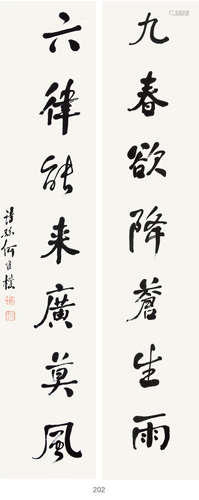 九春欲降蒼生雨
六律能来廣莫風
詩孫何維樸
202